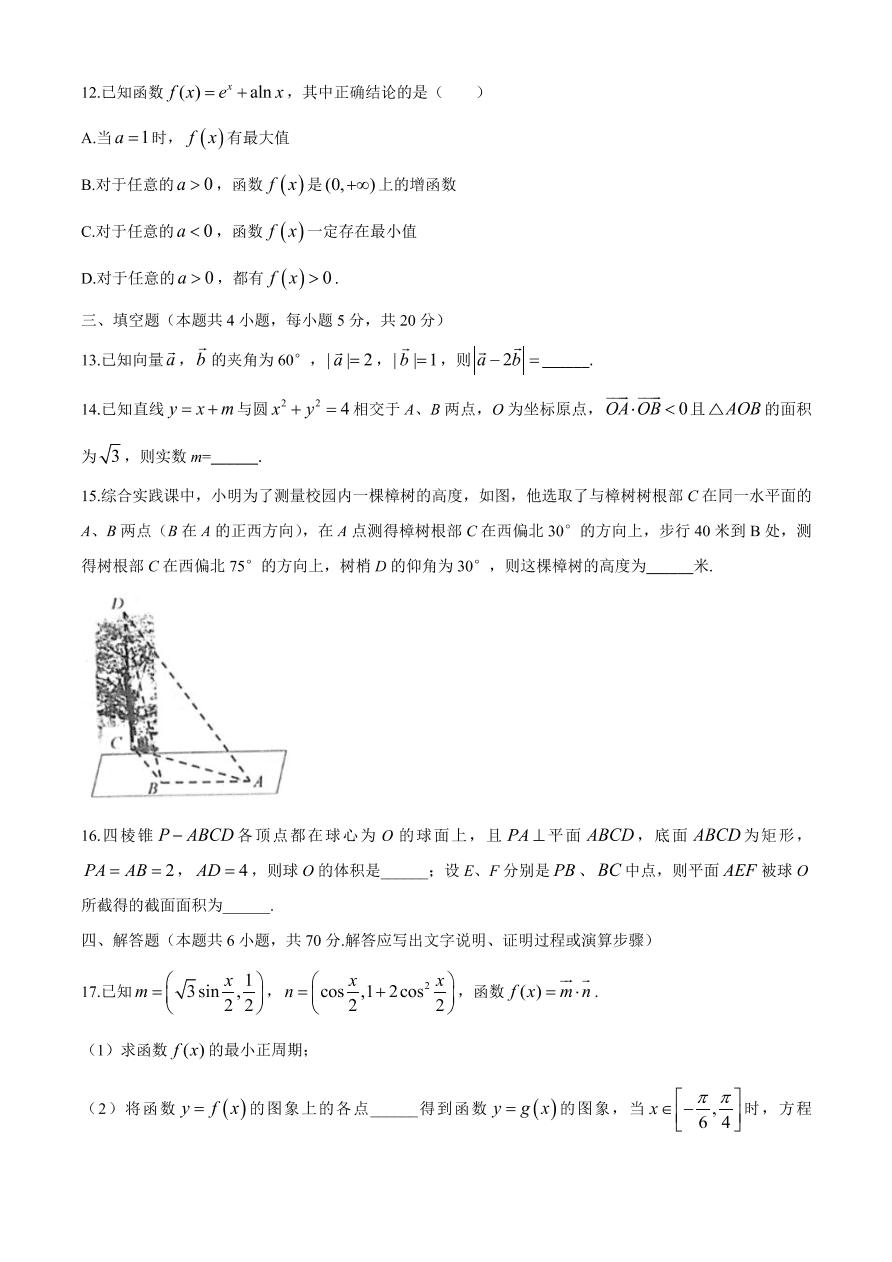 12.已知函数 f(x) = e^x + aln x，其中正确结论的是（　　）
A.当 a = 1 时， f(x) 有最大值
B.对于任意的 a > 0，函数 f(x) 是 (0,+∞) 上的增函数
C.对于任意的 a < 0，函数 f(x) 一定存在最小值
D.对于任意的 a > 0，都有 f(x) > 0 .
三、填空题（本题共 4 小题，每小题 5 分，共 20 分）
13.已知向量 a⃗， b⃗ 的夹角为 60°，| a⃗ |= 2，| b⃗ |= 1，则 |a⃗ − 2b⃗| = ______.
14.已知直线 y = x + m 与圆 x² + y² = 4 相交于 A、B 两点，O 为坐标原点， OA⃗ · OB⃗ < 0 且 △AOB 的面积
为 √3，则实数 m=______.
15.综合实践课中，小明为了测量校园内一棵樟树的高度，如图，他选取了与樟树树根部 C 在同一水平面的
A、B 两点（B 在 A 的正西方向），在 A 点测得樟树根部 C 在西偏北 30°的方向上，步行 40 米到 B 处，测
得树根部 C 在西偏北 75°的方向上，树梢 D 的仰角为 30°，则这棵樟树的高度为______米.
D
C
B
A
16.四棱锥 P − ABCD 各顶点都在球心为 O 的球面上，且 PA ⊥ 平面 ABCD，底面 ABCD 为矩形，
PA = AB = 2， AD = 4，则球 O 的体积是______；设 E、F 分别是 PB 、 BC 中点，则平面 AEF 被球 O
所截得的截面面积为______.
四、解答题（本题共 6 小题，共 70 分.解答应写出文字说明、证明过程或演算步骤）
17.已知 m = (√3 sin x/2, 1/2)， n = (cos x/2, 1 + 2cos² x/2)，函数 f(x) = m⃗ · n⃗ .
（1）求函数 f(x) 的最小正周期；
（2）将函数 y = f(x) 的图象上的各点______得到函数 y = g(x) 的图象，当 x ∈ [−π/6, π/4] 时，方程